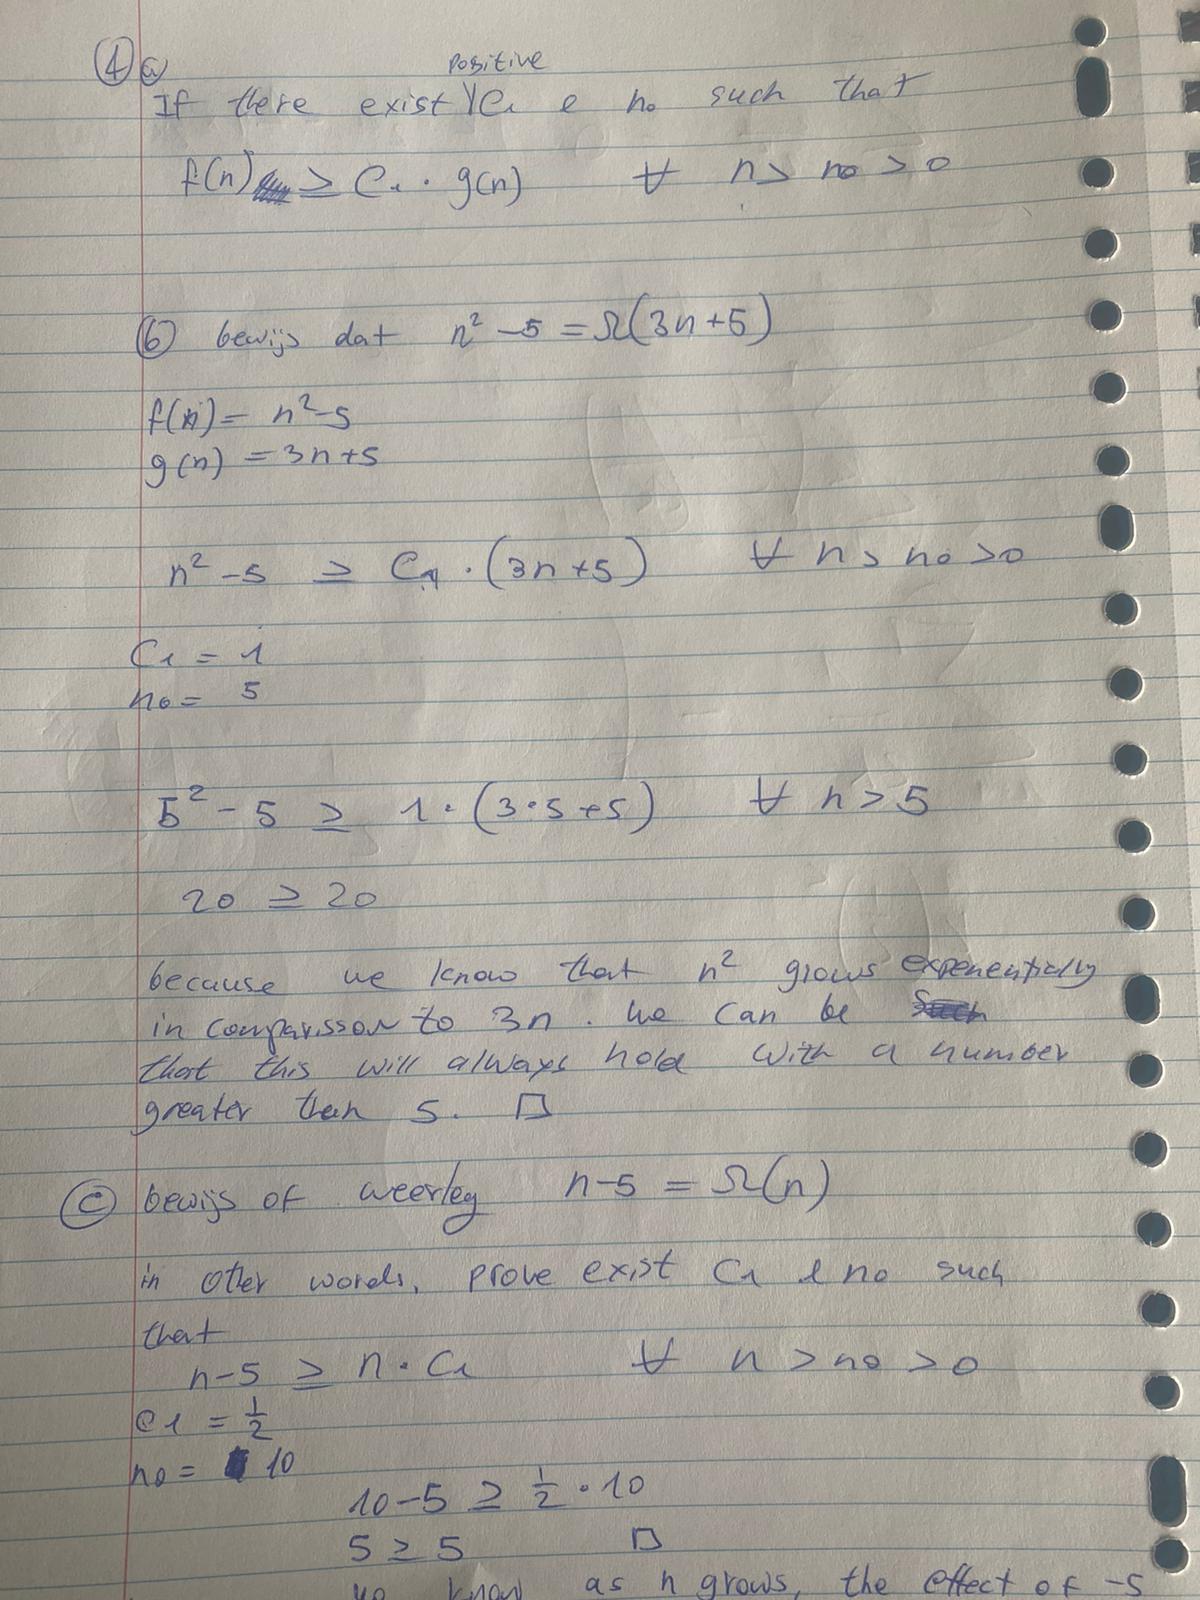 ④ ⓐ
positive
If there exist C₁ e n₀ such that
f(n) ≥ C₁ · g(n) ∀ n > n₀ > 0
ⓑ bewijs dat n² - 5 = Ω(3n+5)
f(n) = n² - 5
g(n) = 3n+5
n² - 5 ≥ C₁ · (3n+5) ∀ n > n₀ > 0
C₁ = 1
n₀ = 5
5² - 5 ≥ 1 · (3·5+5) ∀ n > 5
20 ≥ 20
because we know that n² grows exponentially
in comparisson to 3n. we can be
that this will always hold with a number
greater then 5. □
ⓒ bewijs of weerleg n-5 = Ω(n)
in other words, prove exist C₁ e n₀ such
that
n-5 ≥ n · C₁ ∀ n > n₀ > 0
C₁ = 1/2
n₀ = 10
10-5 ≥ 1/2 · 10
5 ≥ 5 □
know as n grows, the effect of -5